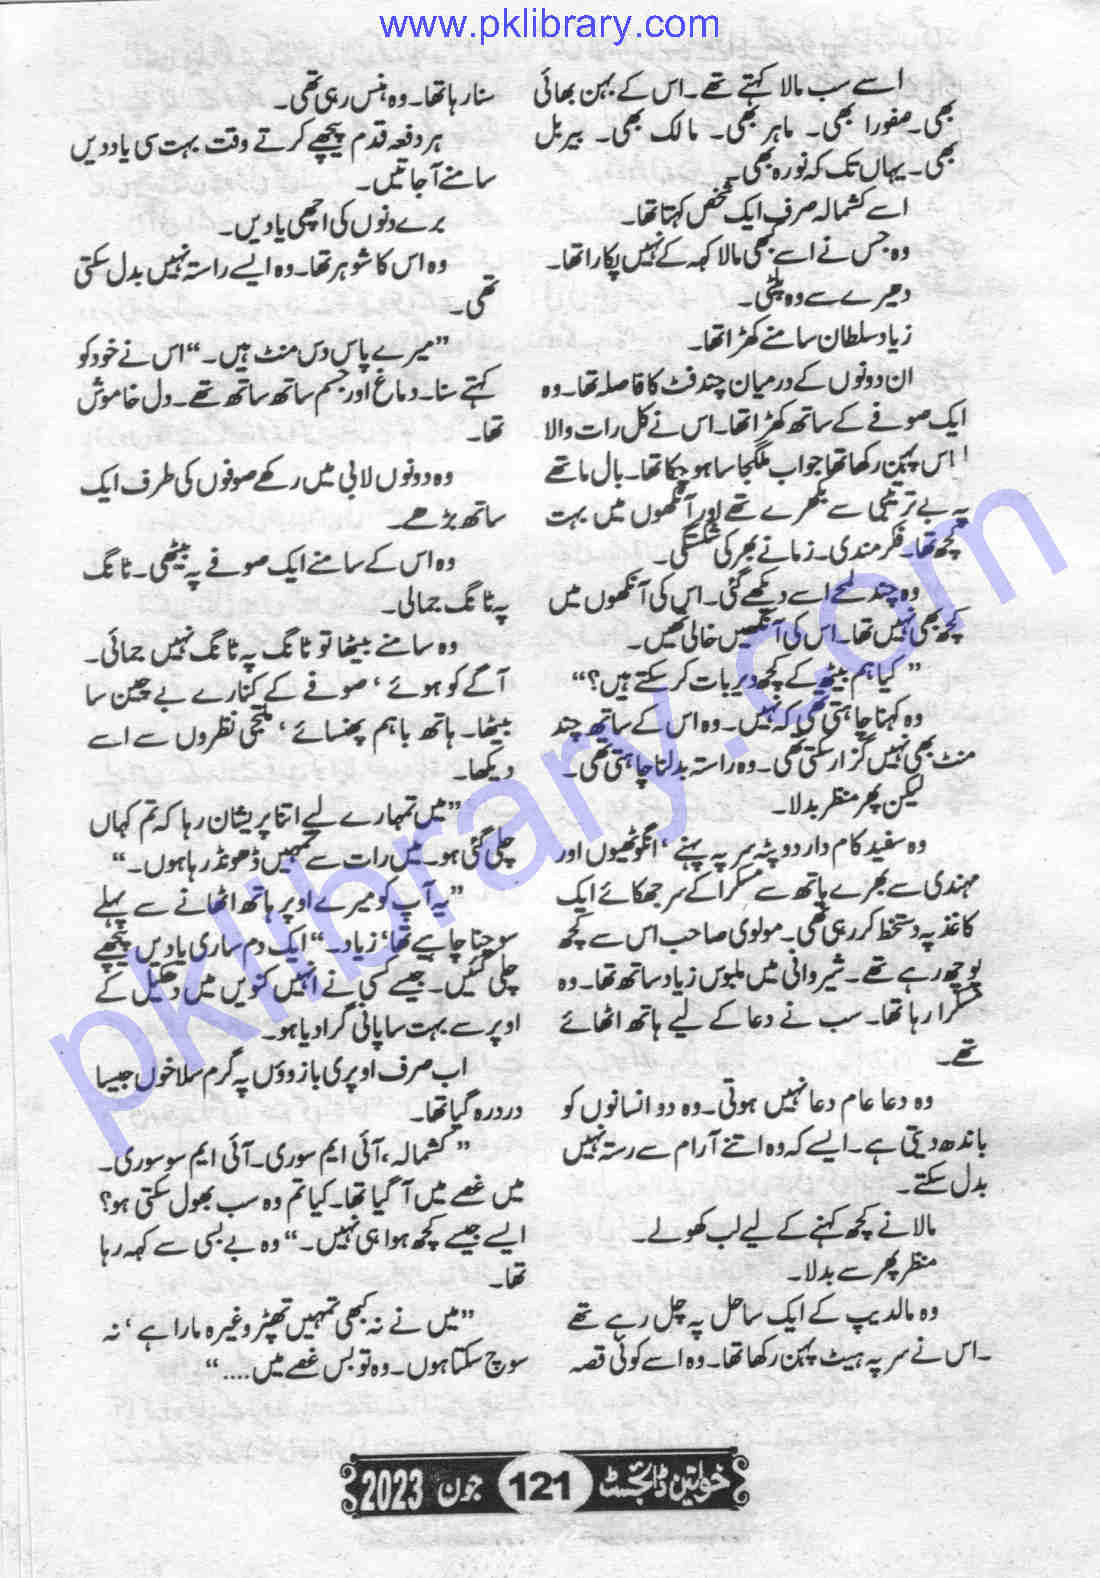 www.pklibrary.com
اسے سب مالا کہتے تھے۔ اس کے بہن بھائی
بھی۔ صفورا بھی۔ ماہر بھی۔ مالک بھی۔ بیربل
بھی۔ یہاں تک کہ نورہ بھی۔
اسے کشمالہ صرف ایک شخص کہتا تھا۔
وہ جس نے اسے کبھی مالا کہہ کے نہیں پکارا تھا۔
دھیرے سے وہ پلٹی۔
زیاد سلطان سامنے کھڑا تھا۔
ان دونوں کے درمیان چند فٹ کا فاصلہ تھا۔ وہ
ایک صوفے کے ساتھ کھڑا تھا۔ اس نے کل رات والا
اس پہن رکھا تھا جو اب ملگجا سا ہو چکا تھا۔ بال ماتھے
پہ بے ترتیبی سے بکھرے تھے اور آنکھوں میں بہت
کچھ تھا۔ فکر مندی۔ زمانے بھر کی شکستگی۔
وہ چند لمحے اسے دیکھے گئی۔ اس کی آنکھوں میں
کچھ بھی نہیں تھا۔ اس کی آنکھیں خالی تھیں۔
”کیا ہم بیٹھ کے کچھ دیر بات کر سکتے ہیں؟“
وہ کہنا چاہتی تھی کہ نہیں۔ وہ اس کے ساتھ چند
منٹ بھی نہیں گزار سکتی تھی۔ وہ راستہ بدلنا چاہتی تھی۔
لیکن پھر منظر بدلا۔
وہ سفید کام دار دوپٹہ سر پہ پہنے، انگوٹھیوں اور
مہندی سے بھرے ہاتھ سے مسکرا کے سر جھکائے ایک
کاغذ پہ دستخط کر رہی تھی۔ مولوی صاحب اس سے کچھ
پوچھ رہے تھے۔ شیروانی میں ملبوس زیاد ساتھ تھا۔ وہ
مسکرا رہا تھا۔ سب نے دعا کے لیے ہاتھ اٹھائے
تھے۔
وہ دعا عام دعا نہیں ہوتی۔ وہ دو انسانوں کو
باندھ دیتی ہے۔ ایسے کہ وہ اتنے آرام سے رستہ نہیں
بدل سکتے۔
مالا نے کچھ کہنے کے لیے لب کھولے۔
منظر پھر سے بدلا۔
وہ مالدیپ کے ایک ساحل پہ چل رہے تھے
۔ اس نے سر پہ ہیٹ پہن رکھا تھا۔ وہ اسے کوئی قصہ
سنا رہا تھا۔ وہ ہنس رہی تھی۔
ہر دفعہ قدم پیچھے کرتے وقت بہت سی یادیں
سامنے آ جاتیں۔
برے دنوں کی اچھی یادیں۔
وہ اس کا شوہر تھا۔ وہ ایسے راستہ نہیں بدل سکتی
تھی۔
”میرے پاس دس منٹ ہیں۔“ اس نے خود کو
کہتے سنا۔ دماغ اور جسم ساتھ ساتھ تھے۔ دل خاموش
تھا۔
وہ دونوں لابی میں رکھے صوفوں کی طرف ایک
ساتھ بڑھے۔
وہ اس کے سامنے ایک صوفے پہ بیٹھی۔ ٹانگ
پہ ٹانگ جمالی۔
وہ سامنے بیٹھا تو ٹانگ پہ ٹانگ نہیں جمائی۔
آگے کو ہوئے، صوفے کے کنارے بے چین سا
بیٹھا۔ ہاتھ باہم پھنسائے، ملتجی نظروں سے اسے
دیکھا۔
”میں تمہارے لیے اتنا پریشان رہا کہ تم کہاں
چلی گئی ہو۔ میں رات سے تمہیں ڈھونڈ رہا ہوں۔“
”یہ آپ کو میرے اوپر ہاتھ اٹھانے سے پہلے
سوچنا چاہیے تھا، زیاد۔“ ایک دم ساری یادیں پیچھے
چلی گئیں۔ جیسے کسی نے انہیں کنویں میں دھکیل کے
اوپر سے بہت سا پانی گرا دیا ہو۔
اب صرف اوپری بازوؤں پہ گرم سلاخوں جیسا
درد رہ گیا تھا۔
”کشمالہ، آئی ایم سوری۔ آئی ایم سو سوری۔
میں غصے میں آ گیا تھا۔ کیا تم وہ سب بھول سکتی ہو؟
ایسے جیسے کچھ ہوا ہی نہیں۔“ وہ بے بسی سے کہہ رہا
تھا۔
”میں نے نہ کبھی تمہیں تھپڑ وغیرہ مارا ہے، نہ
سوچ سکتا ہوں۔ وہ تو بس غصے میں....“
pklibrary.com
خواتین ڈائجسٹ 121 جون 2023